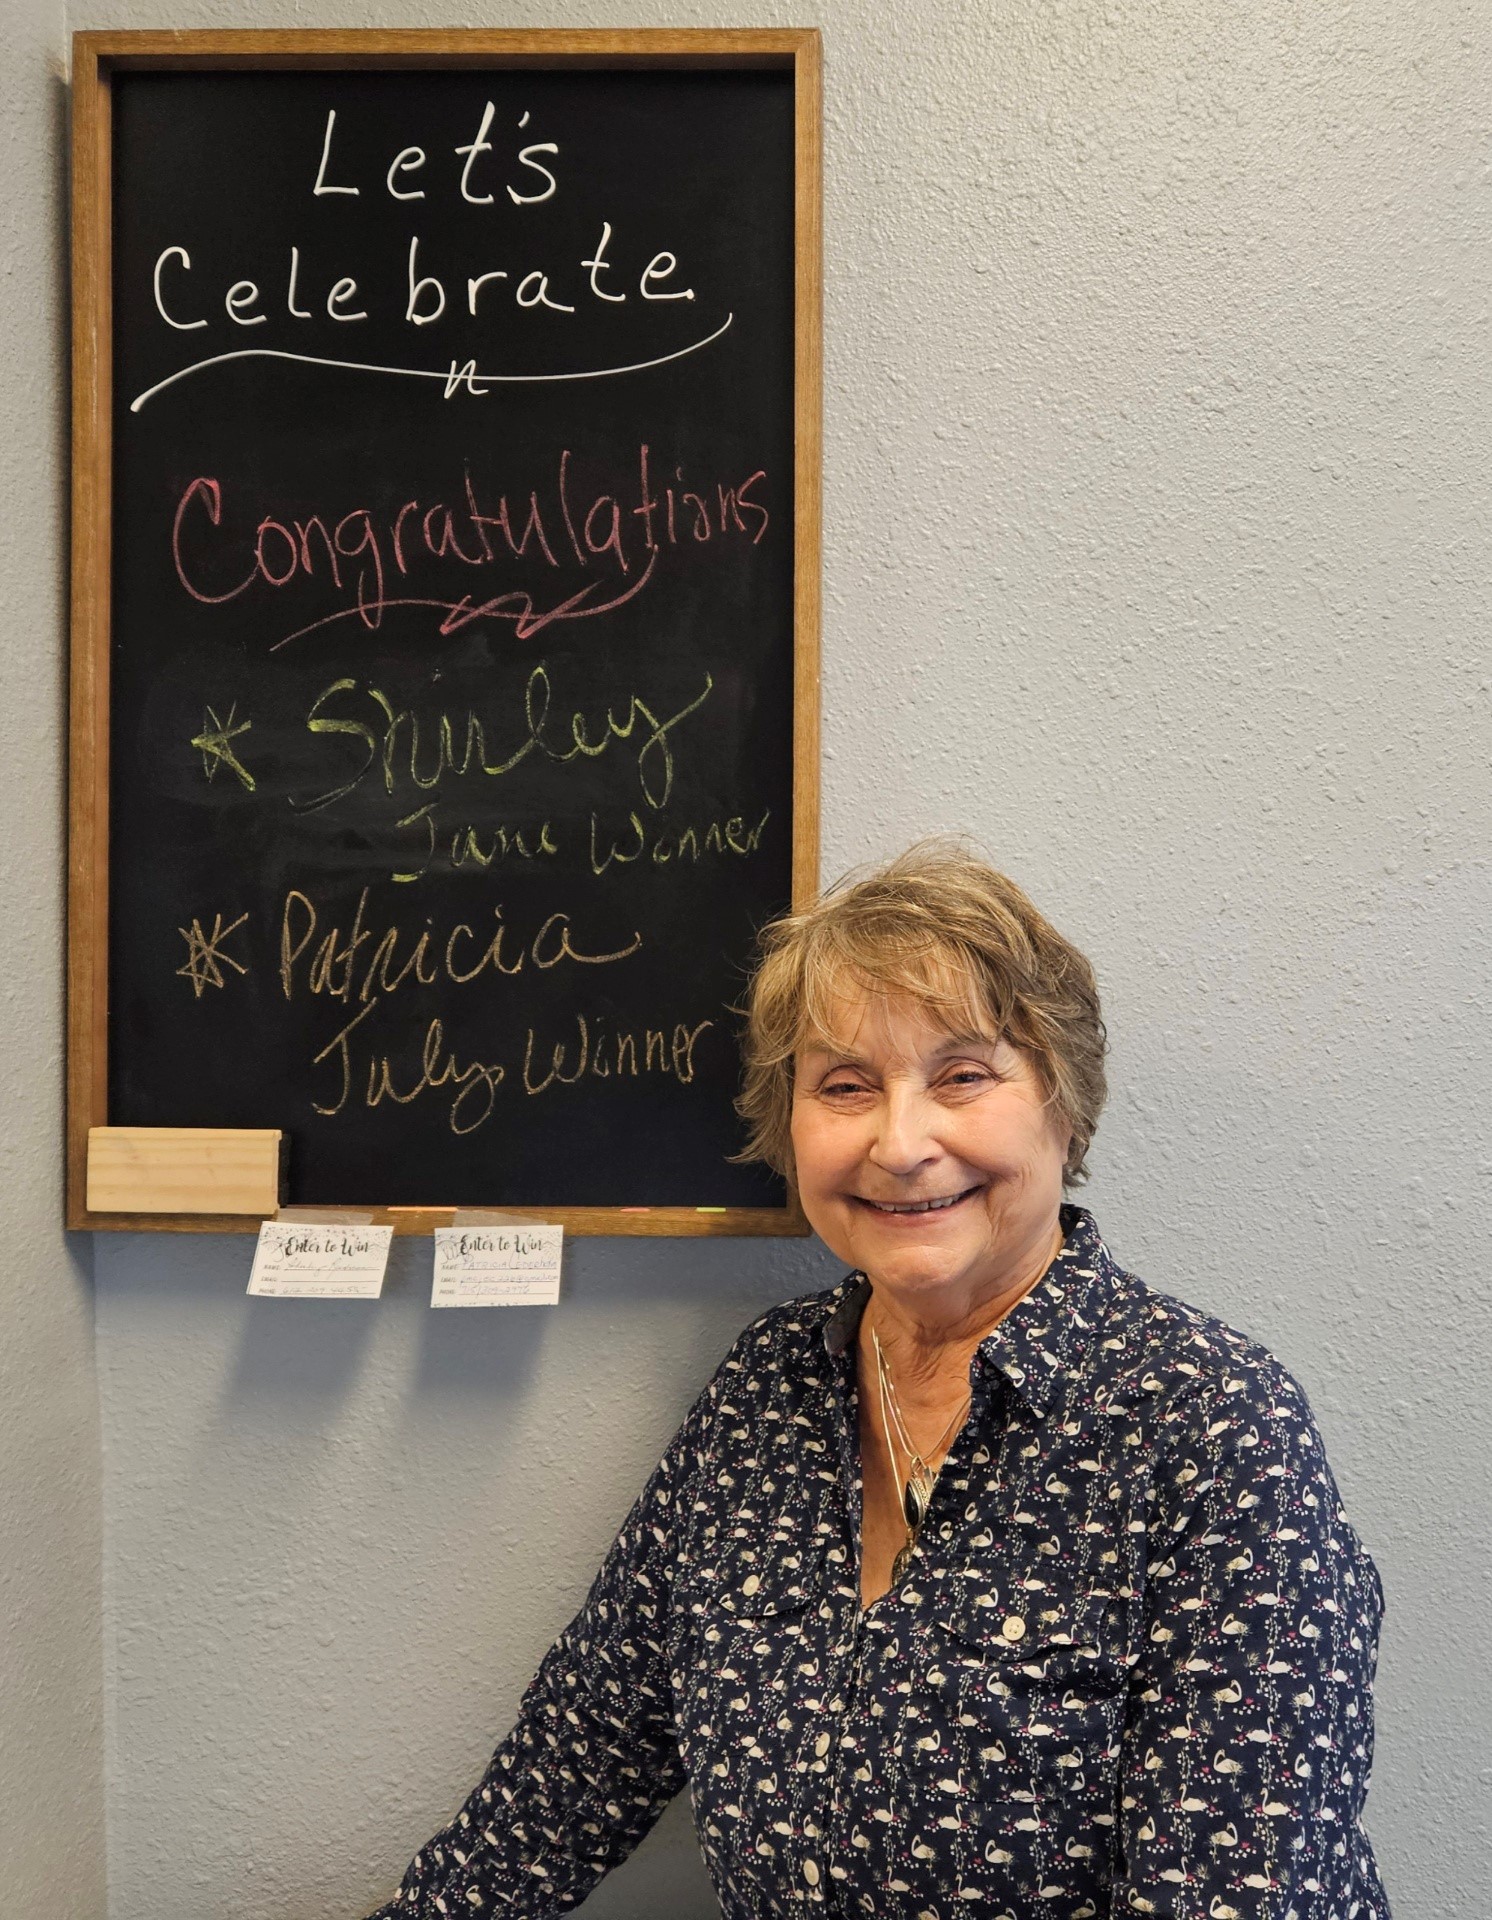 Let's
Celebrate
Congratulations
Shirley
June Winner
Patricia
July Winner
Enter to Win
NAME
EMAIL
PHONE
Enter to Win
NAME PATRICIA
EMAIL
PHONE